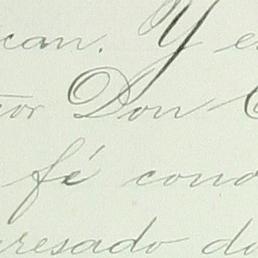 can. Y e
tor Don C
fé cono
resado do